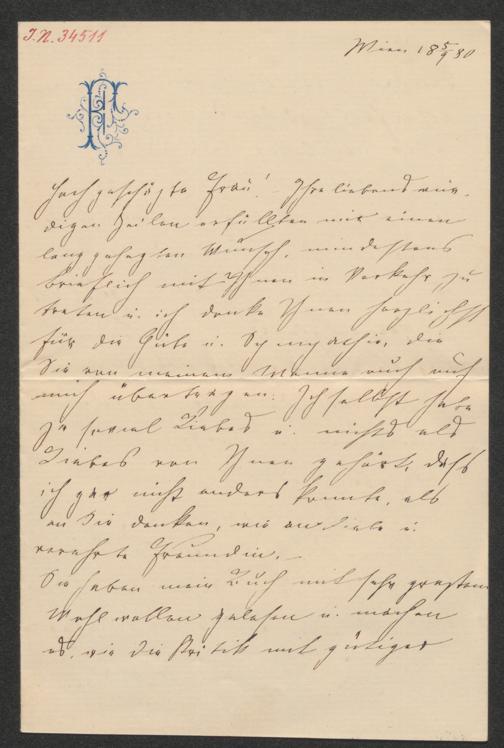 I.N. 34511
Wien 18 5/9 80
Hochgeschätzte Frau! Ihre liebenswür-
digen Zeilen erfüllten mir einen
lang gehegten Wunsch, mindestens
brieflich mit Ihnen in Verkehr zu
treten u. ich danke Ihnen herzlichst
für die Güte u. Sympathie, die
Sie von meinem Manne auch auf
mich übertragen. Ich selbst habe
so soviel Liebes u. nichts als
Liebes von Ihnen gehört, daß
ich gar nicht anders konnte, als
an Sie denken, wie an liebe u.
verehrte Freundin. –
Sie haben mein Buch mit sehr großem
Wohlwollen gelesen u. machen
es, wie die Kritik mit gütiger